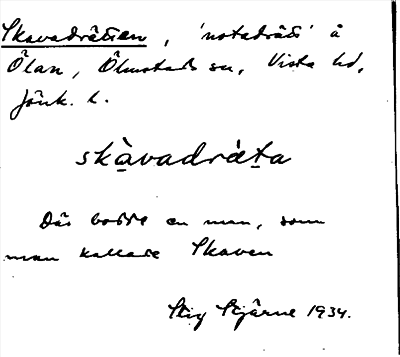 Skavadräten, 'notadrät' å
Ölan, Ölmstads sn, Vista hd,
Jönk. l.
skàvadrǽta
Där bodde en man, som
man kallade Skaven
Stig Stjärne 1934.